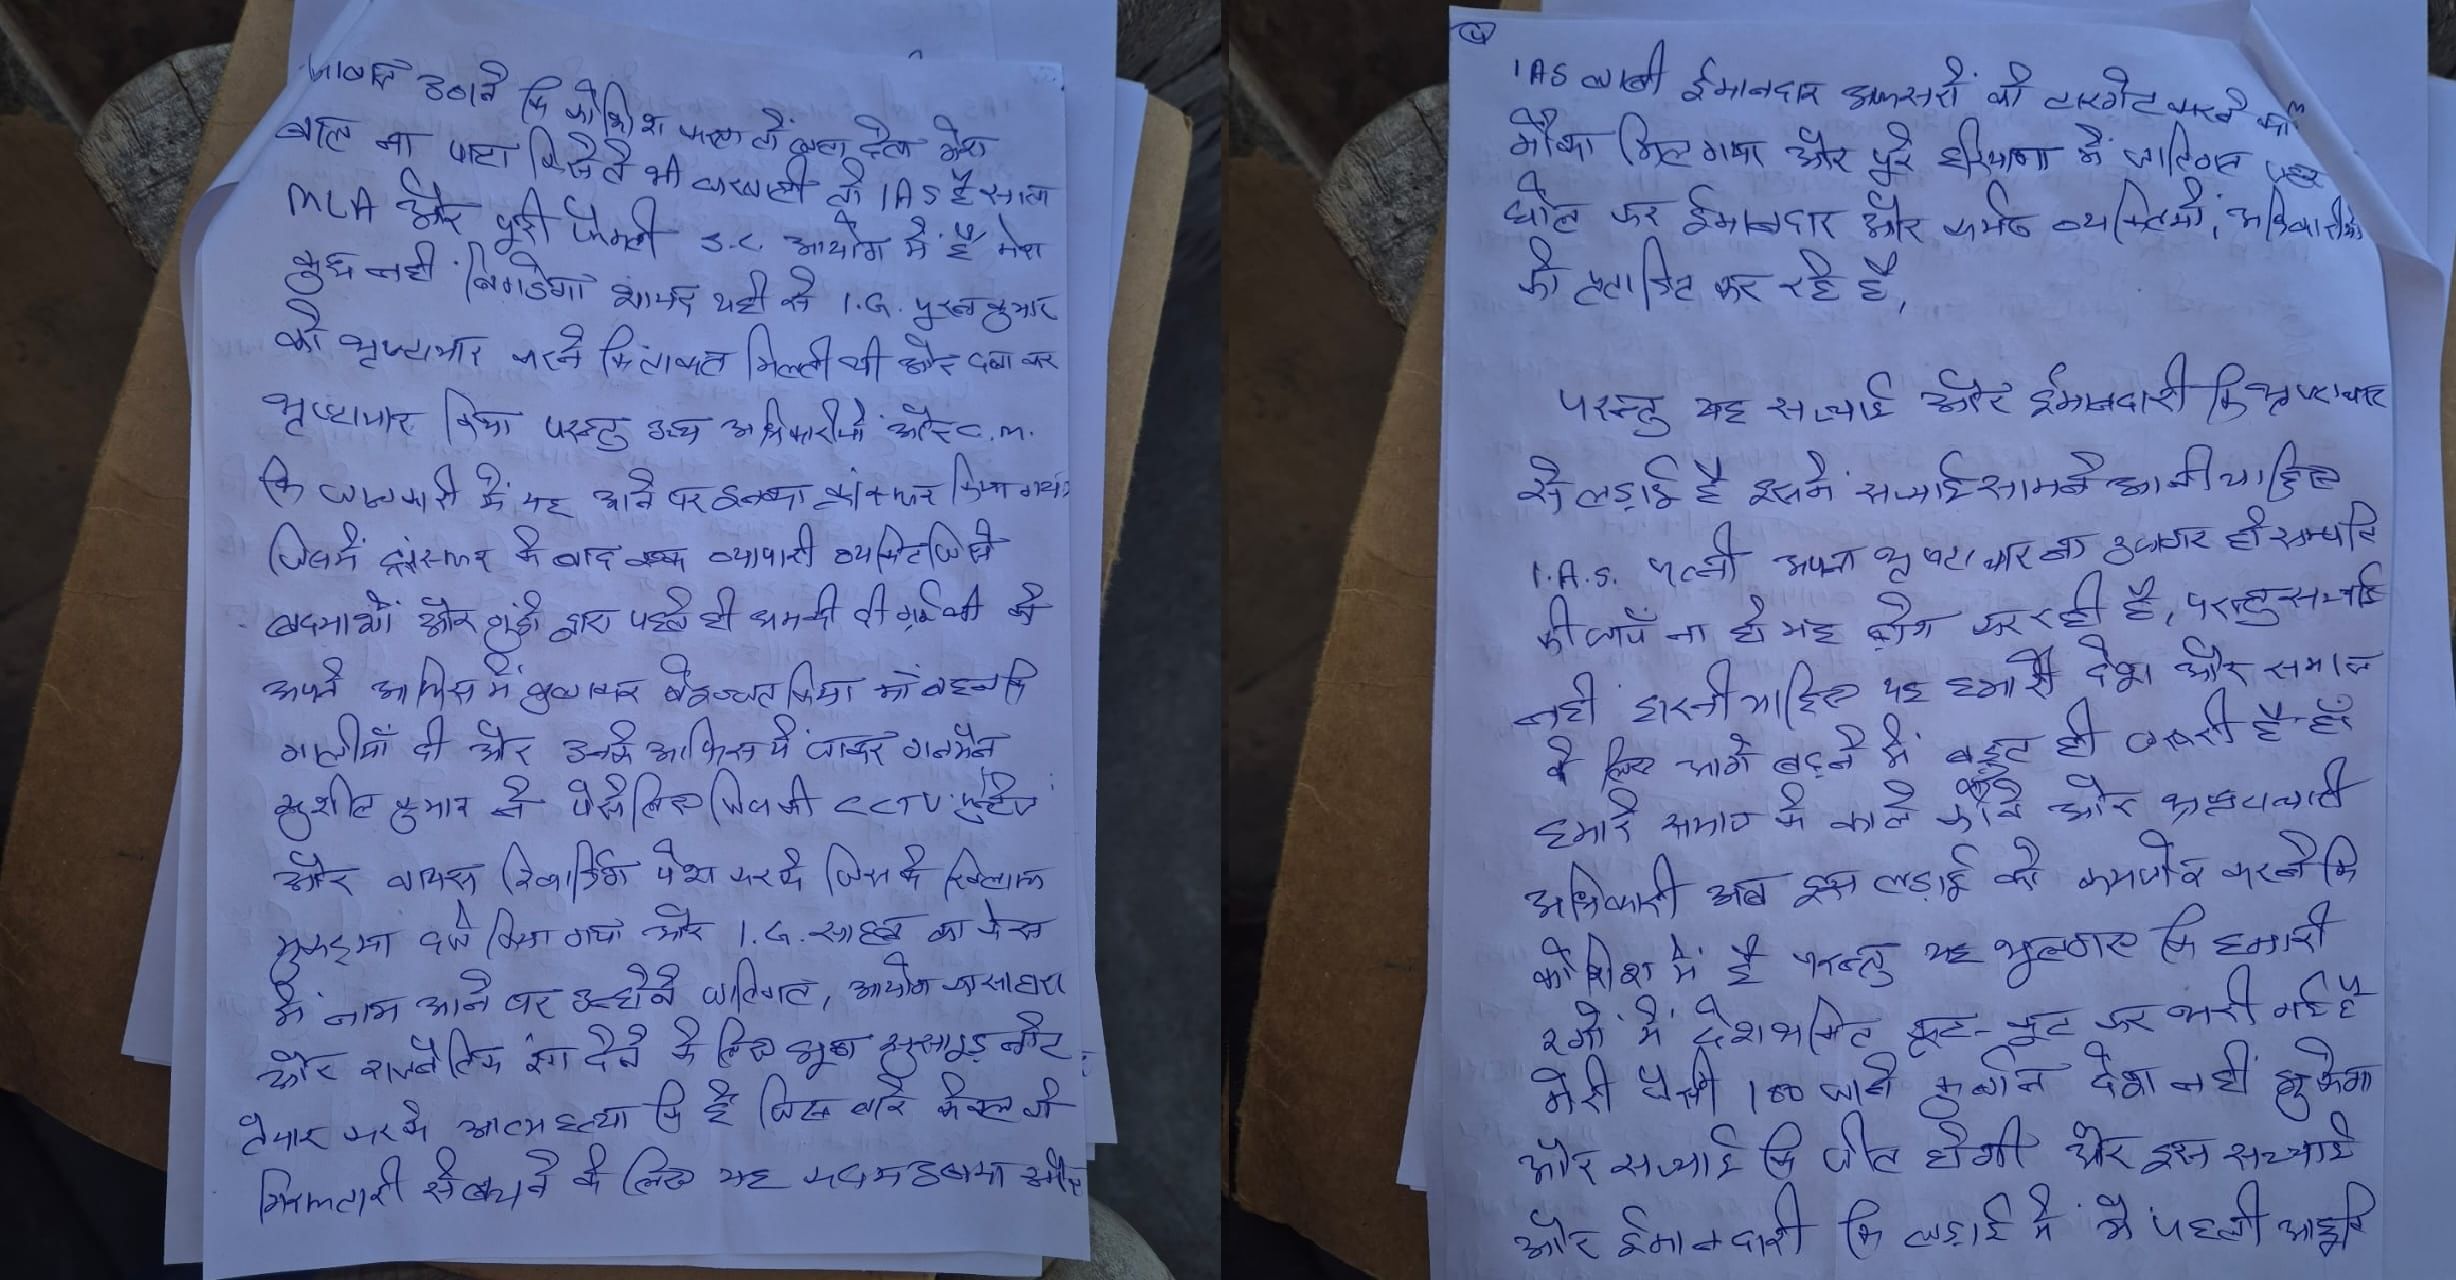 आवाज उठाने कि कोशिश करता तो बता देता मेरा
बाल ना पाटा किसीते भी घरवाली तो IAS है साला
MLA और पूरी फैमली S.C. आयोग में है मेरा
कुछ नही बिगडेगा शायद यही से I.G. पुरन कुमार
को भृष्टाचार करने कि ताकत मिलती थी और दबा कर
भृष्टाचार किया परन्तु उच्च अधिकारीयों और C.M.
कि जानकारी में यह आने पर इनका ट्रांसफर किया गया
जिसमें ट्रांसफर के बाद एक व्यापारी व्यक्ति जिसे
बदमाशों और गुंडो द्वारा पहले ही धमकी दी गई थी को
अपने आफिस में बुलाकर बेइज्जत किया माँ बहन कि
गालीयाँ दी और उनके आफिस में जाकर गनमैन
सुशील कुमार ने पैसे लिए जिसकी CCTV फुटेज
और वायस रिकार्डिंग पेश करके जिसके खिलाफ
मुकद्दमा दर्ज किया गया और I.G. साहब का केस
में नाम आने पर उन्होने जातिगत, आयोग का सहारा
और राजनैतिक रंग देने के लिए झूठा सुसाइड नोट
तैयार करके आत्महत्या कि है जिस बारे केवल जो
गिरफ्तारी से बचने के लिए यह कदम उठाया और
4
IAS लाबी ईमानदार अफसरों को टारगेट करने का
मौका मिल गया और पूरे हरियाणा में जातिगत जहर
घोल कर ईमानदार और कर्मठ व्यक्तियों, अधिकारीयों
को प्रताडित कर रहे है,
परन्तु यह सच्चाई और ईमानदारी कि भृष्टाचार
से लड़ाई है इसमें सच्चाई सामने आनी चाहिए
I.A.S. पत्नी अपना भृष्टाचार ना उजागर हो सम्पति
की जाचँ ना हो यह ढ़ोंग कर रही है, परन्तु सच्चाई
नही हारनी चाहिए यह हमारे देश और समाज
के लिए आगे बढ़ने में बहुत ही जरूरी है
हमारे समाज के काले कौवे और भ्रष्टाचारी
अधिकारी अब इस लड़ाई को कमजोर करने कि
कोशिश में है परन्तु यह भूल गए कि हमारी
रगों में देशभक्ति कूट-कूट कर भरी गई है
मेरी जैसी 100 जाने कुर्बान देश नहीं झुकेगा
और सच्चाई कि जीत होगी और इस सच्चाई
और ईमानदारी कि लड़ाई में मैं पहली आहुति